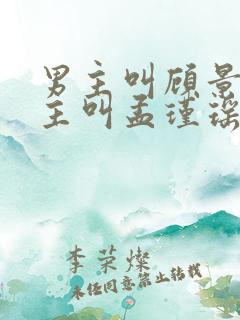 男主叫顾景
主叫孟瑾瑶
李荣燦
未经同意禁止转载